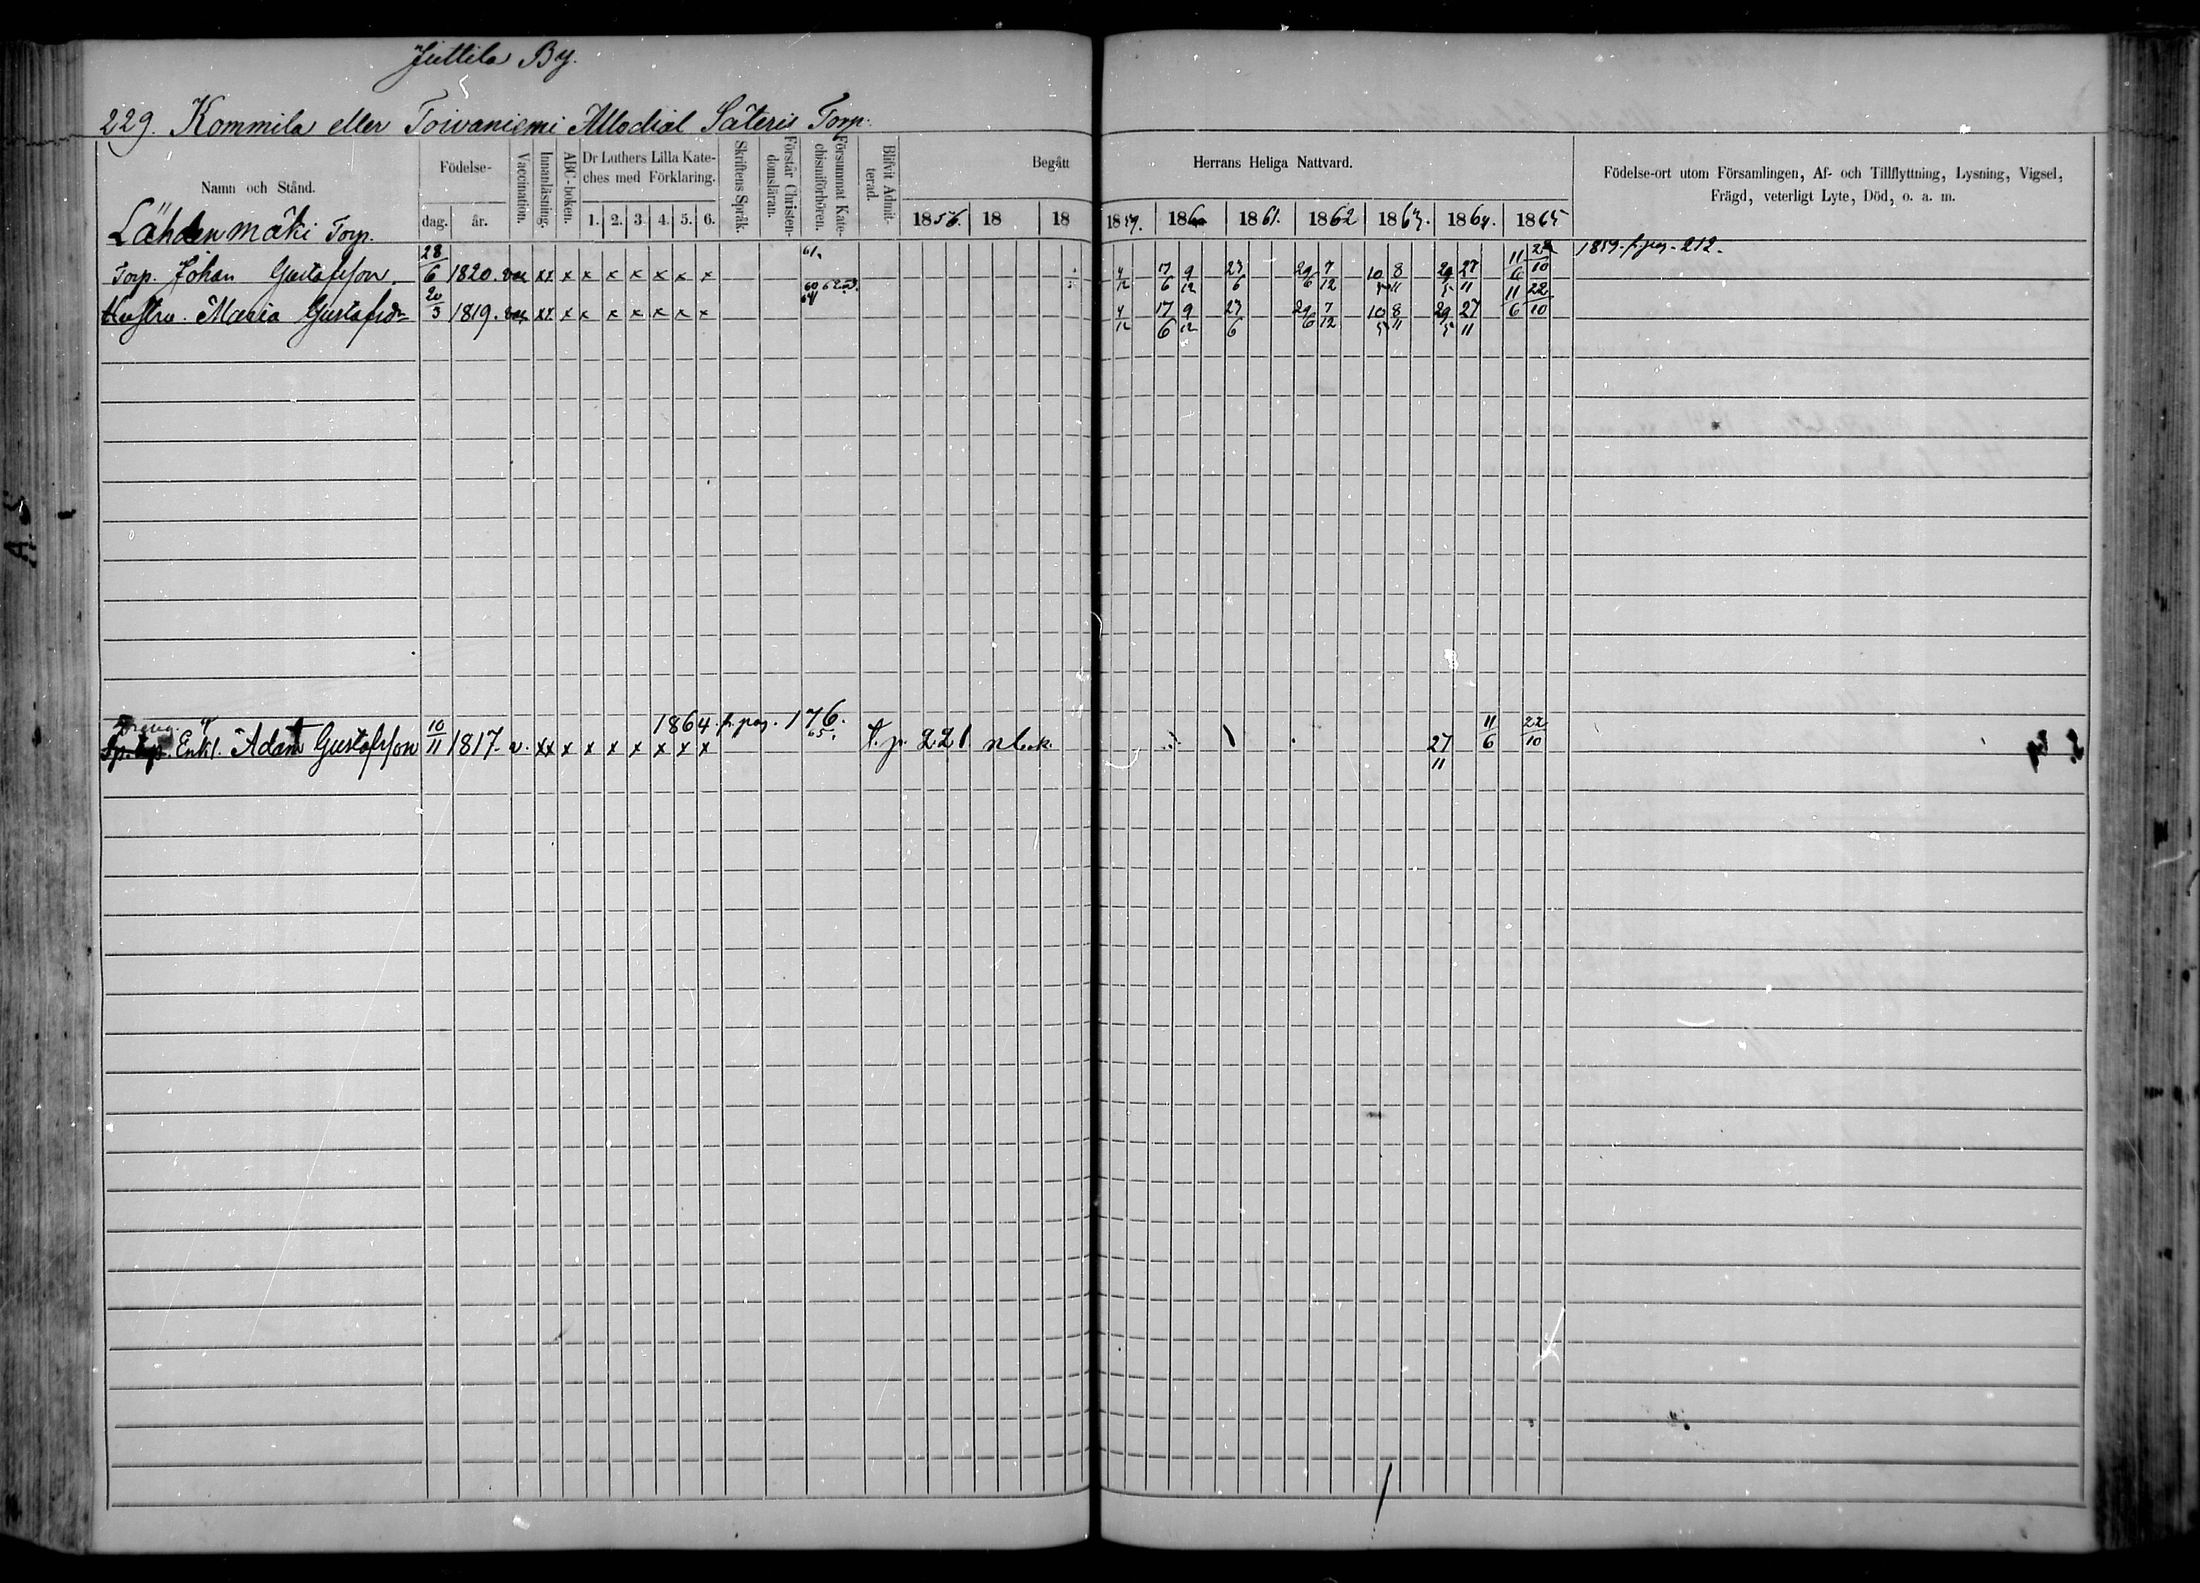 Juttila By.
229. Kommila eller Toivaniemi Allodial Säteris Torp.
Namn och Stånd.
Födelse-
dag. år.
Vaccination.
Innanläsning.
ABC-boken.
Dr Luthers Lilla Kate-
ches med Förklaring.
1. 2. 3. 4. 5. 6.
Skriftens Språk.
Förstår Christen-
domsläran.
Försummat Kate-
chismiförhören.
Blifvit Admit-
terad.
Begått Herrans Heliga Nattvard.
1856. 18 18 1859. 1860 1861. 1862 1863. 1864. 1865
Födelse-ort utom Församlingen, Af- och Tillflyttning, Lysning, Vigsel,
Frägd, veterligt Lyte, Död, o. a. m.
Lähdenmäki Torp.
Torp. Johan Gustafsson. 28/6 1820. vac xx x x x x x x x 61. 4/12 17/6 9/12 27/6 29/6 7/12 10/5 8/11 29/5 27/11 11/6 22/10 1859. f. pag. 212.
Hustru. Maria Gustafsdr 20/3 1819. vac xx x x x x x x x 60 62 63. 64 4/12 17/6 9/12 27/6 29/6 7/12 10/5 8/11 29/5 27/11 11/6 22/10
1864. f. pag. 176.
Enkl. Adam Gustafsson 10/11 1817. v. xx x x x x x x x 65. t. p. 221 27/11 11/6 22/10
A. 5